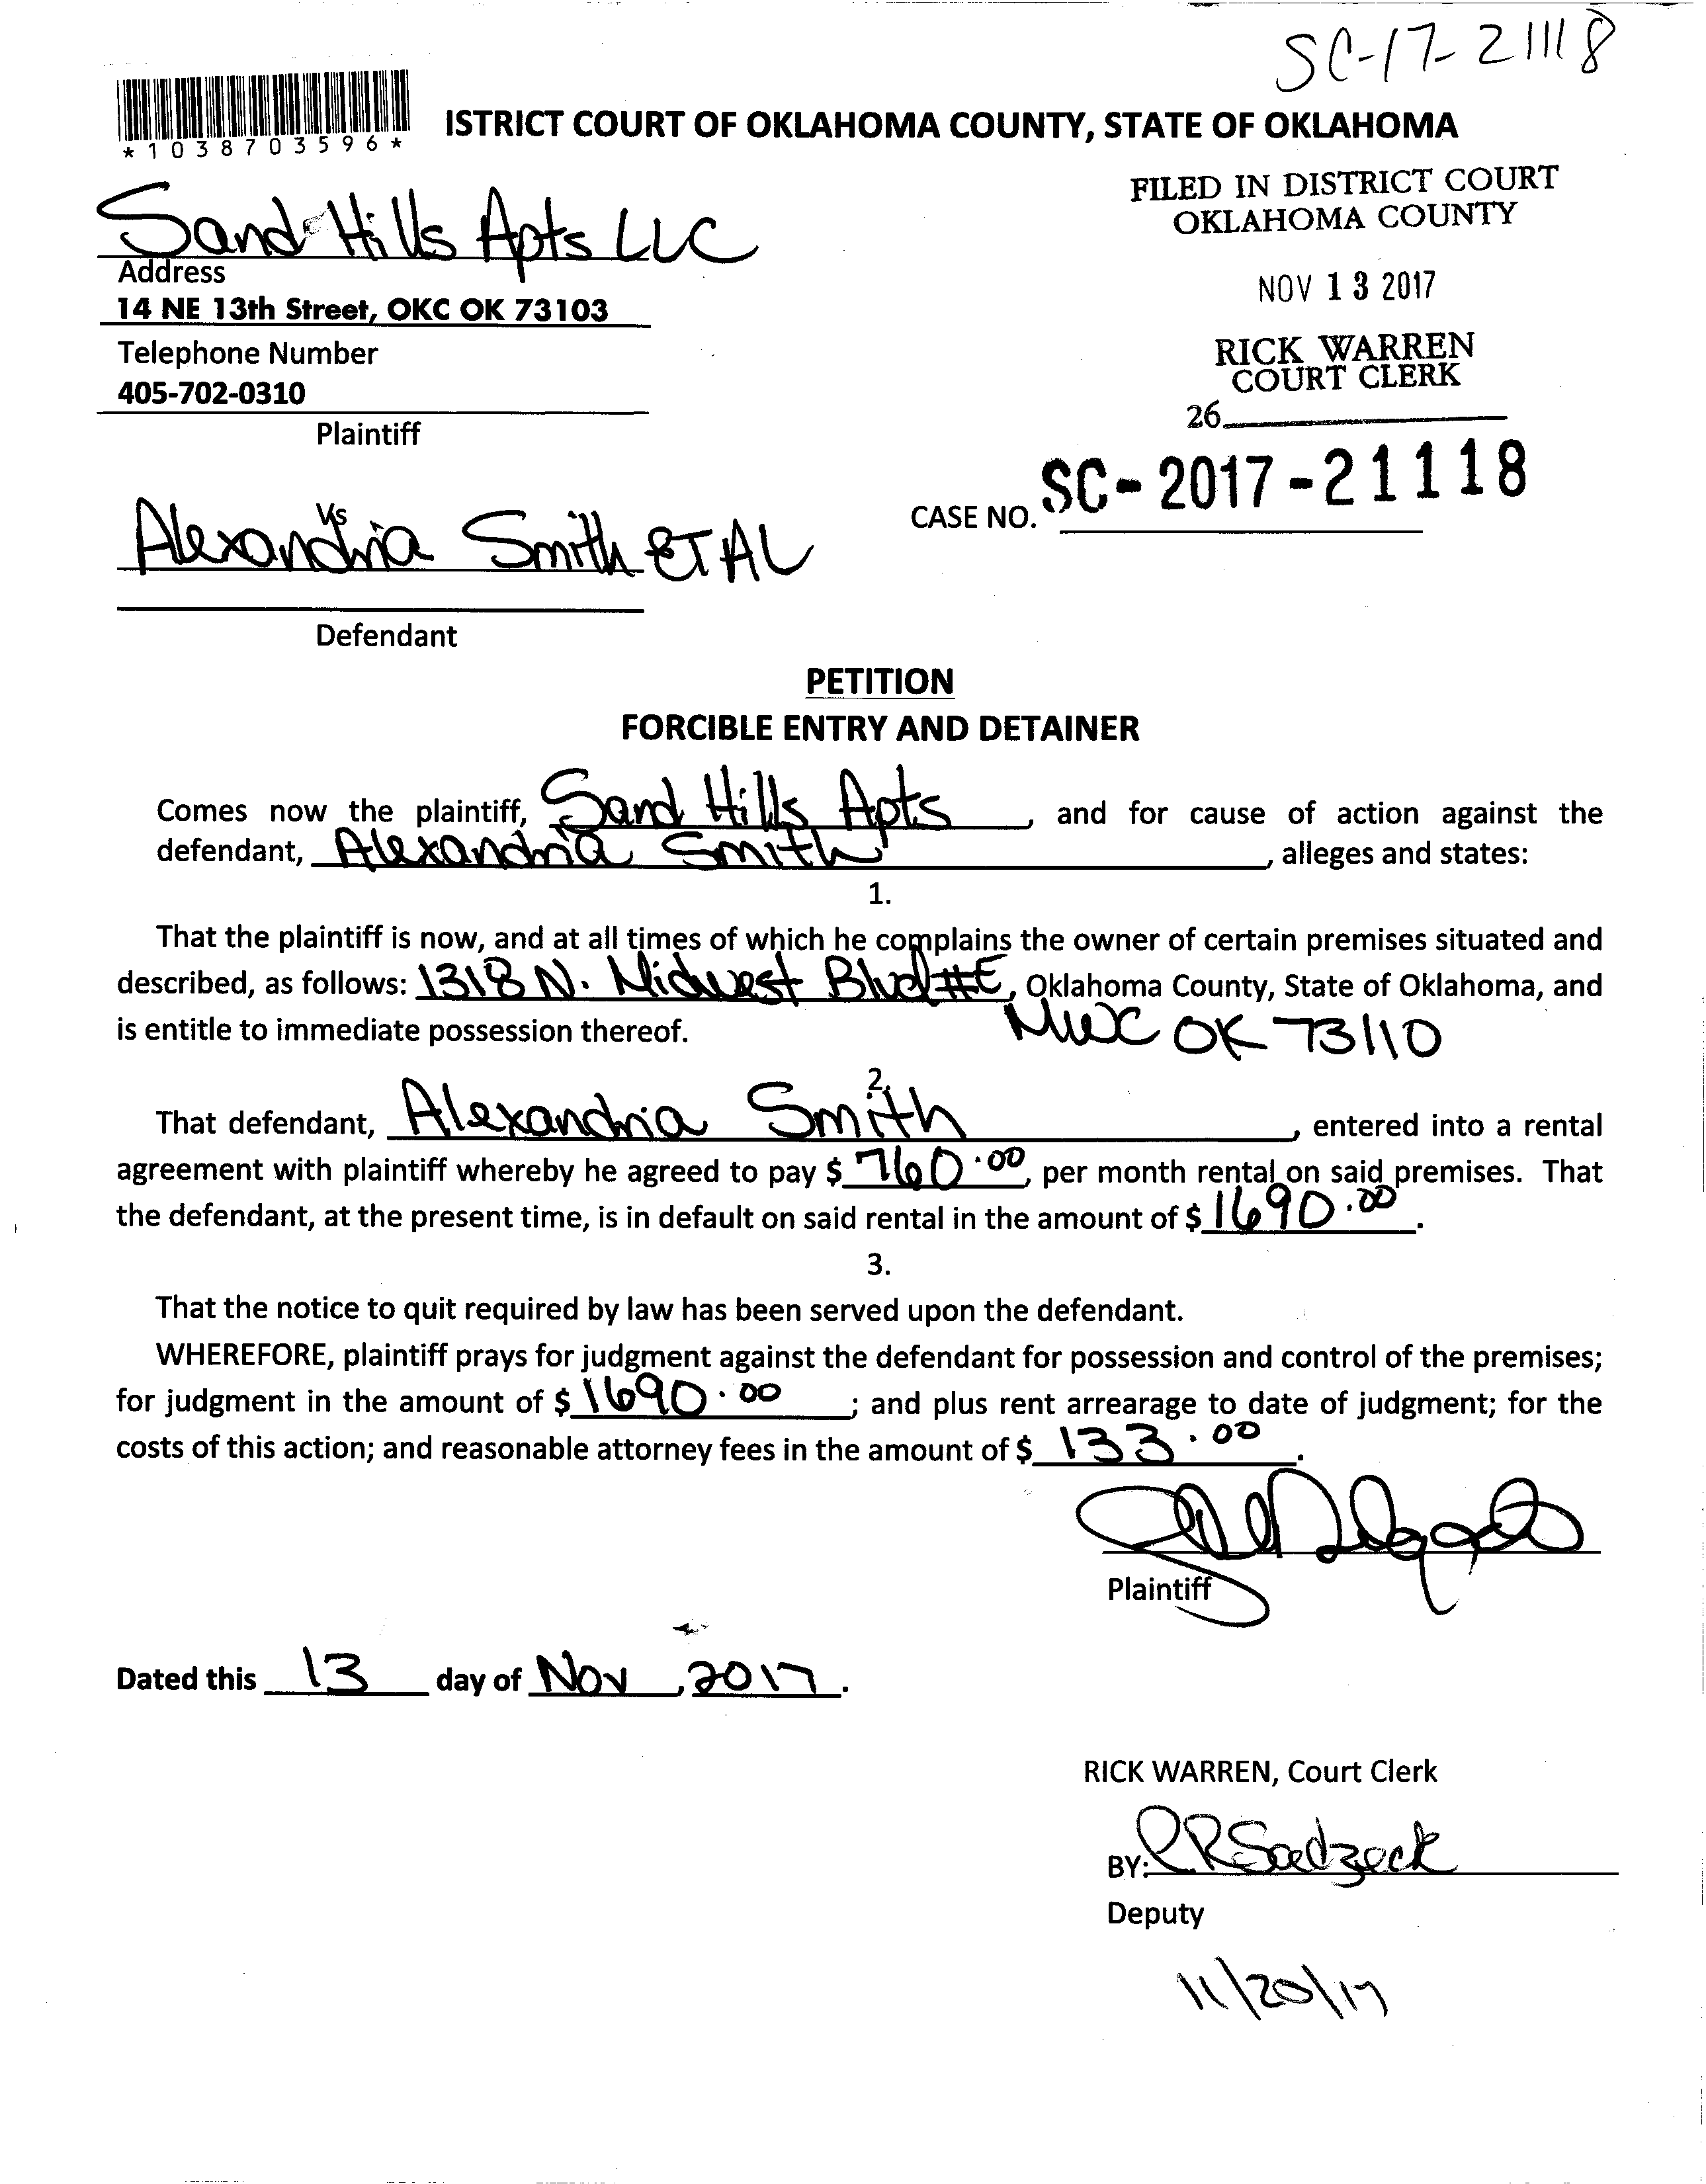 SC-17-21118
*1038703596*
ISTRICT COURT OF OKLAHOMA COUNTY, STATE OF OKLAHOMA
FILED IN DISTRICT COURT
OKLAHOMA COUNTY
Sand Hills Apts LLC
Address
14 NE 13th Street, OKC OK 73103
NOV 13 2017
Telephone Number
405-702-0310
RICK WARREN
COURT CLERK
26
Plaintiff
Vs
CASE NO. SC-2017-21118
Alexandria Smith ET AL
Defendant
PETITION
FORCIBLE ENTRY AND DETAINER
Comes now the plaintiff, Sand Hills Apts, and for cause of action against the
defendant, Alexandria Smith, alleges and states:
1.
That the plaintiff is now, and at all times of which he complains the owner of certain premises situated and
described, as follows: 1318 N. Midwest Blvd #E, Oklahoma County, State of Oklahoma, and
is entitle to immediate possession thereof. MWC OK 73110
2.
That defendant, Alexandria Smith, entered into a rental
agreement with plaintiff whereby he agreed to pay $ 760.00, per month rental on said premises. That
the defendant, at the present time, is in default on said rental in the amount of $ 1690.00.
3.
That the notice to quit required by law has been served upon the defendant.
WHEREFORE, plaintiff prays for judgment against the defendant for possession and control of the premises;
for judgment in the amount of $ 1690.00; and plus rent arrearage to date of judgment; for the
costs of this action; and reasonable attorney fees in the amount of $ 133.00.
Plaintiff
Dated this 13 day of Nov, 2017.
RICK WARREN, Court Clerk
BY:
Deputy
11/20/17